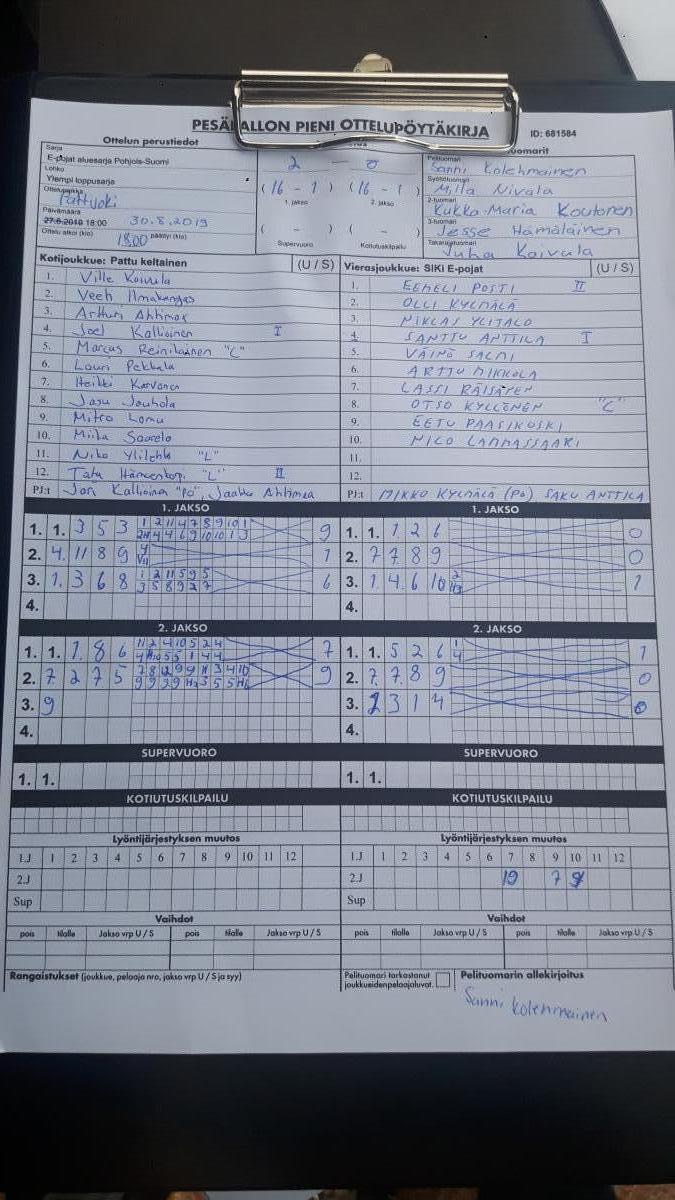 PESÄPALLON PIENI OTTELUPÖYTÄKIRJA
ID: 681584
Ottelun perustiedot
Sarja
E-pojat aluesarja Pohjois-Suomi
Lohko
Ylempi loppusarja
Ottelupaikka
Pattijoki
Päivämäärä
27.8.2019 18:00 30.8.2019
Ottelu alkoi (klo) 18:00 päättyi (klo)
2 — 0
(16 - 1) (16 - 1)
1. jakso 2. jakso
( - ) ( - )
Supervuoro Kotiutuskilpailu
Tuomarit
Pelituomari
Sanni Kolehmainen
Syöttötuomari
Milla Nivala
2-tuomari
Kukka-Maria Koutonen
3-tuomari
Jesse Hämäläinen
Takarajatuomari
Juha Koivula
Kotijoukkue: Pattu keltainen (U / S)
1. Ville Koivula
2. Veeti Ilmakangas
3. Artturi Ahtimaa
4. Joel Kallioinen I
5. Marcus Reinilainen "C"
6. Lauri Pekkala
7. Heikki Karvonen
8. Jasu Jouhola
9. Mitro Lomu
10. Miita Saarela
11. Niko Ylilehto "L"
12. "L" II
PJ:t Jari Kallioinen "Po", Jaakko Ahtimaa
Vierasjoukkue: SiKi E-pojat (U / S)
1. EEMELI POSTI II
2. OLLI KYLMÄLÄ
3. NIKLAS YLITALO
4. SANTTU ANTTILA I
5. VÄINÖ SALMI
6. ARTTU MIKKOLA
7. LASSI RÄISÄNEN
8. OTSO KYLLÖNEN "C"
9. EETU PAASIKOSKI
10. NICO LAMMASSAARI
11.
12.
PJ:t MIKKO KYLMÄLÄ (Po) SAKU ANTTILA
1. JAKSO
1. 1. 3 5 3 9
2. 4. 11 8 9 1
3. 1. 3 6 8 6
4.
1. JAKSO
1. 1. 1 2 6 0
2. 7 7 8 9 0
3. 1. 4 6 10 1
4.
2. JAKSO
1. 1. 1. 8 6 7
2. 7 2 7 5 9
3. 9
4.
2. JAKSO
1. 1. 5 2 6 1
2. 7. 7 8 9 0
3. 3 1 4 0
4.
SUPERVUORO
1. 1.
SUPERVUORO
1. 1.
KOTIUTUSKILPAILU
KOTIUTUSKILPAILU
Lyöntijärjestyksen muutos
1.J 1 2 3 4 5 6 7 8 9 10 11 12
2.J
Sup
Lyöntijärjestyksen muutos
1.J 1 2 3 4 5 6 7 8 9 10 11 12
2.J 10 7 9
Sup
Vaihdot
pois tilalle Jakso vrp U / S pois tilalle Jakso vrp U / S
Vaihdot
pois tilalle Jakso vrp U / S pois tilalle Jakso vrp U / S
Rangaistukset (joukkue, pelaaja nro, jakso vrp U / S ja syy)
Pelituomari tarkastanut
joukkueiden pelaajaluvat.
Pelituomarin allekirjoitus
Sanni Kolehmainen